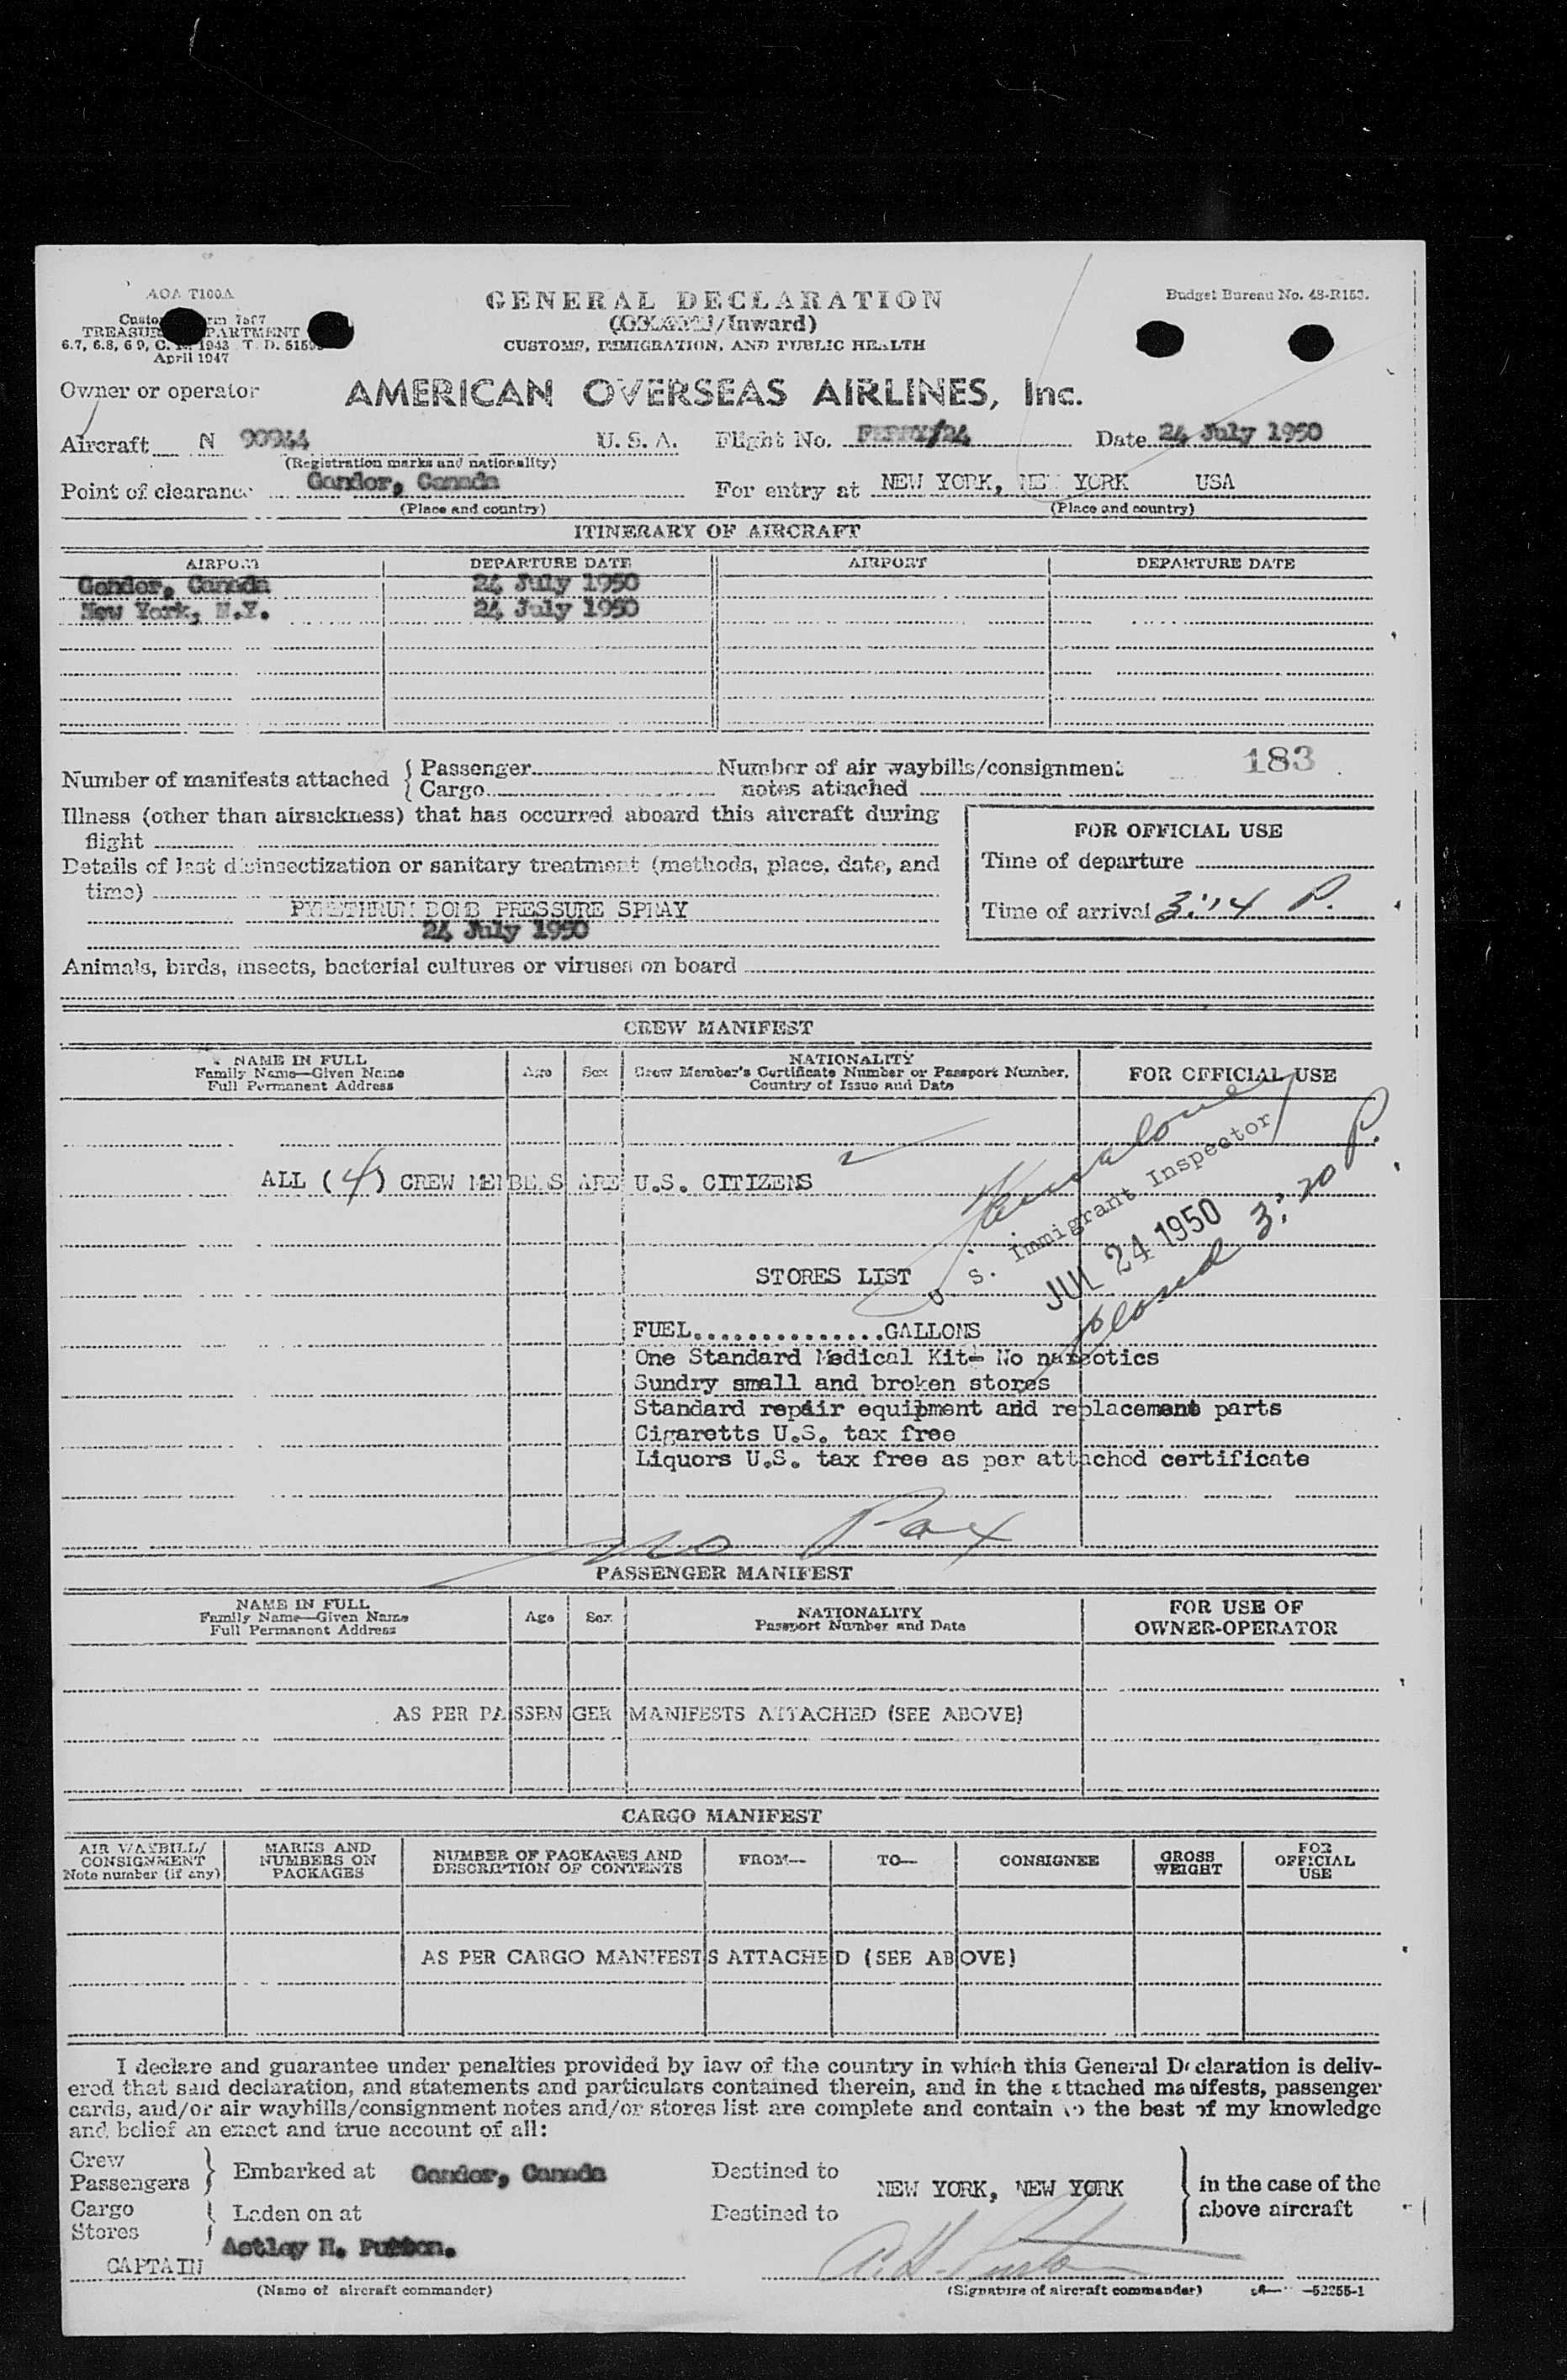 AOA T100A
GENERAL DECLARATION
Budget Bureau No. 48-R153.
(/Inward)
TREASURY DEPARTMENT
6.7, 6.8, 6.9, C. 1943 T. D.
April 1947
CUSTOMS, IMMIGRATION, AND PUBLIC HEALTH
Owner or operator AMERICAN OVERSEAS AIRLINES, Inc.
Aircraft N 90944 U. S. A. Flight No. FERRY/24 Date 24 July 1950
(Registration marks and nationality)
Point of clearance Gander, Canada For entry at NEW YORK, NEW YORK USA
(Place and country) (Place and country)
ITINERARY OF AIRCRAFT
AIRPORT DEPARTURE DATE AIRPORT DEPARTURE DATE
Gander, Canada 24 July 1950
New York, N.Y. 24 July 1950
183
Number of manifests attached { Passenger Number of air waybills/consignment
{ Cargo notes attached
Illness (other than airsickness) that has occurred aboard this aircraft during
flight
Details of last disinsectization or sanitary treatment (methods, place, date, and
time)
PYRETHRUM BOMB PRESSURE SPRAY
24 July 1950
FOR OFFICIAL USE
Time of departure
Time of arrival 3:14 P.
Animals, birds, insects, bacterial cultures or viruses on board
CREW MANIFEST
NAME IN FULL
Family Name—Given Name
Full Permanent Address
Age Sex
NATIONALITY
Crew Member's Certificate Number or Passport Number,
Country of Issue and Date
FOR OFFICIAL USE
ALL (4) CREW MEMBERS ARE U.S. CITIZENS
U. S. Immigrant Inspector
JUL 24 1950
3:20 P.
STORES LIST
FUEL...............GALLONS
One Standard Medical Kit- No narcotics
Sundry small and broken stores
Standard repair equipment and replacement parts
Cigaretts U.S. tax free
Liquors U.S. tax free as per attached certificate
No Pax
PASSENGER MANIFEST
NAME IN FULL
Family Name—Given Name
Full Permanent Address
Age Sex
NATIONALITY
Passport Number and Date
FOR USE OF
OWNER-OPERATOR
AS PER PASSENGER MANIFESTS ATTACHED (SEE ABOVE)
CARGO MANIFEST
AIR WAYBILL/
CONSIGNMENT
Note number (if any)
MARKS AND
NUMBERS ON
PACKAGES
NUMBER OF PACKAGES AND
DESCRIPTION OF CONTENTS
FROM—
TO—
CONSIGNEE
GROSS
WEIGHT
FOR
OFFICIAL
USE
AS PER CARGO MANIFESTS ATTACHED (SEE ABOVE)
I declare and guarantee under penalties provided by law of the country in which this General Declaration is deliv-
ered that said declaration, and statements and particulars contained therein, and in the attached manifests, passenger
cards, and/or air waybills/consignment notes and/or stores list are complete and contain to the best of my knowledge
and belief an exact and true account of all:
Crew
Passengers } Embarked at Gander, Canada Destined to NEW YORK, NEW YORK } in the case of the
Cargo } Laden on at Destined to above aircraft
Stores
CAPTAIN Astley H.
(Name of aircraft commander) (Signature of aircraft commander) —52255-1